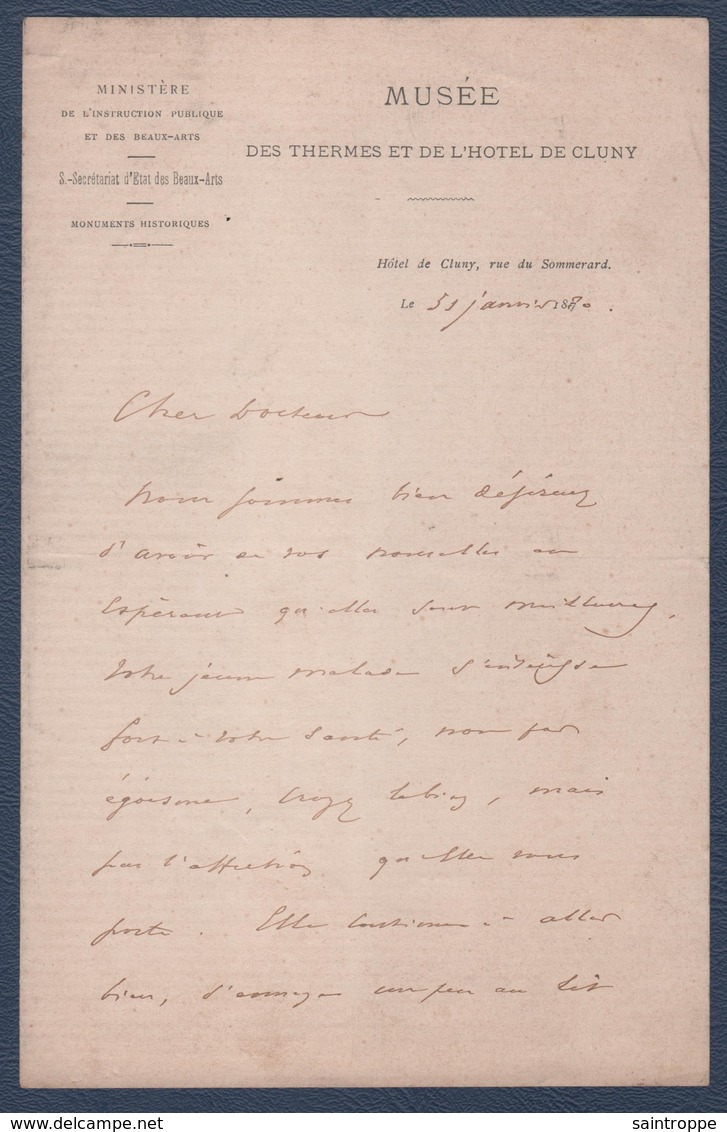 MINISTÈRE
DE L'INSTRUCTION PUBLIQUE
ET DES BEAUX-ARTS
S.-Secrétariat d'Etat des Beaux-Arts
MONUMENTS HISTORIQUES
MUSÉE
DES THERMES ET DE L'HOTEL DE CLUNY
Hôtel de Cluny, rue du Sommerard.
Le 31 janvier 1880.
Cher Docteur
Nous sommes bien désireux
d'avoir de vos nouvelles en
Espérant qu'elles sont meilleures,
Votre jeune malade s'intéresse
fort à votre santé, non par
égoïsme, croyez le bien, mais
par l'affection qu'elle vous
porte. Elle continue à aller
bien, s'ennuye un peu au lit
saintroppe